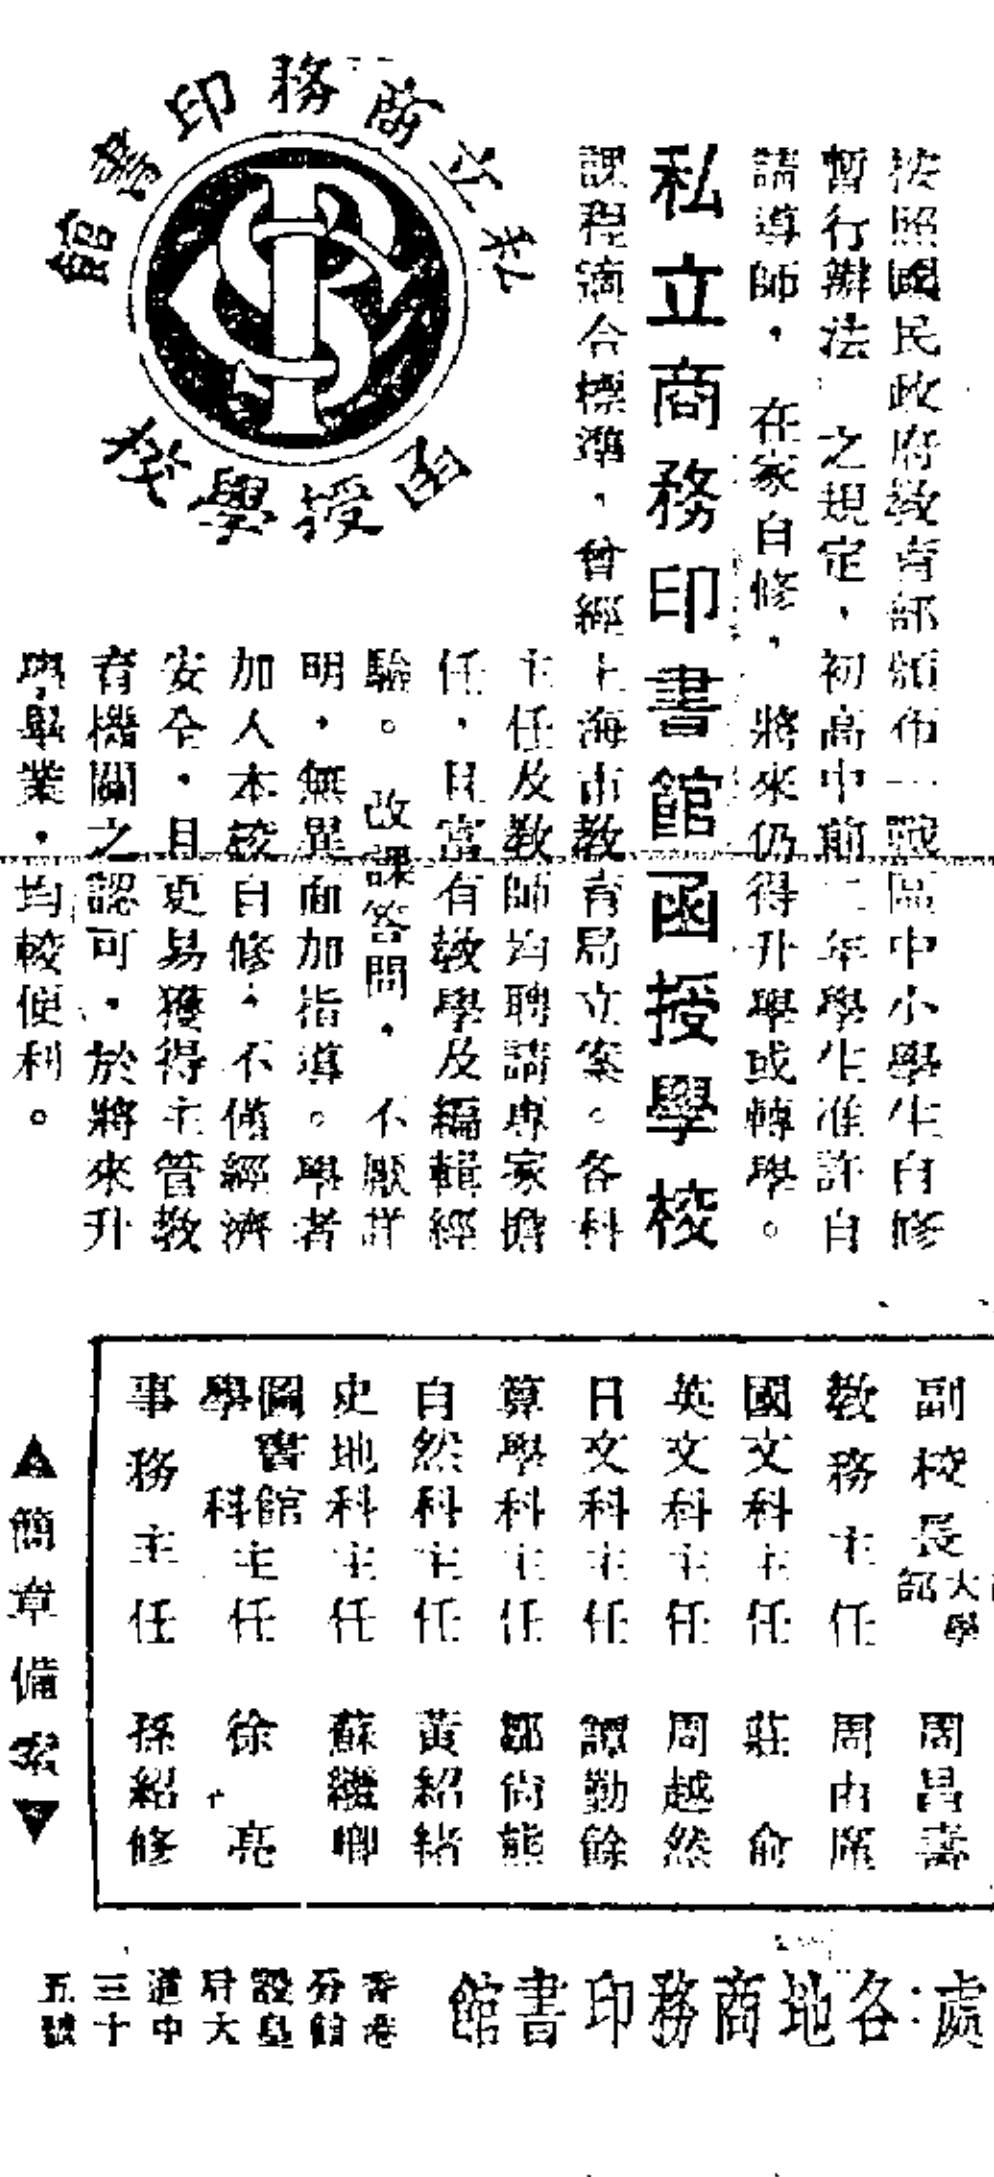 私立商務印書館
函授學校
按照國民政府教育部頒布一戰區中小學生自修
暫行辦法 之規定，初高中前二年學生准許自
請導師， 在家自修， 將來仍得升學或轉學。
私立商務印書館函授學校
課程適合標準，曾經上海市教育局立案。各科
主任及教師均聘請專家擔
任，且富有教學及編輯經
驗。 改課答問， 不厭詳
明，無異面加指導。學者
加入本校自修，不僅經濟
安全，且更易獲得主管教
育機關之認可，於將來升
學畢業，均較便利。
副校長 大學部 周昌壽
教務主任 周由廑
國文科主任 莊 俞
英文科主任 周越然
日文科主任 譚勤餘
算學科主任 鄒尚熊
自然科主任 黃紹緒
史地科主任 蘇繼卿
圖書館學科主任 徐 亮
事務主任 孫紹修
▲簡章備索▼
處：各地商務印書館
香港分館設皇后大道中三十五號